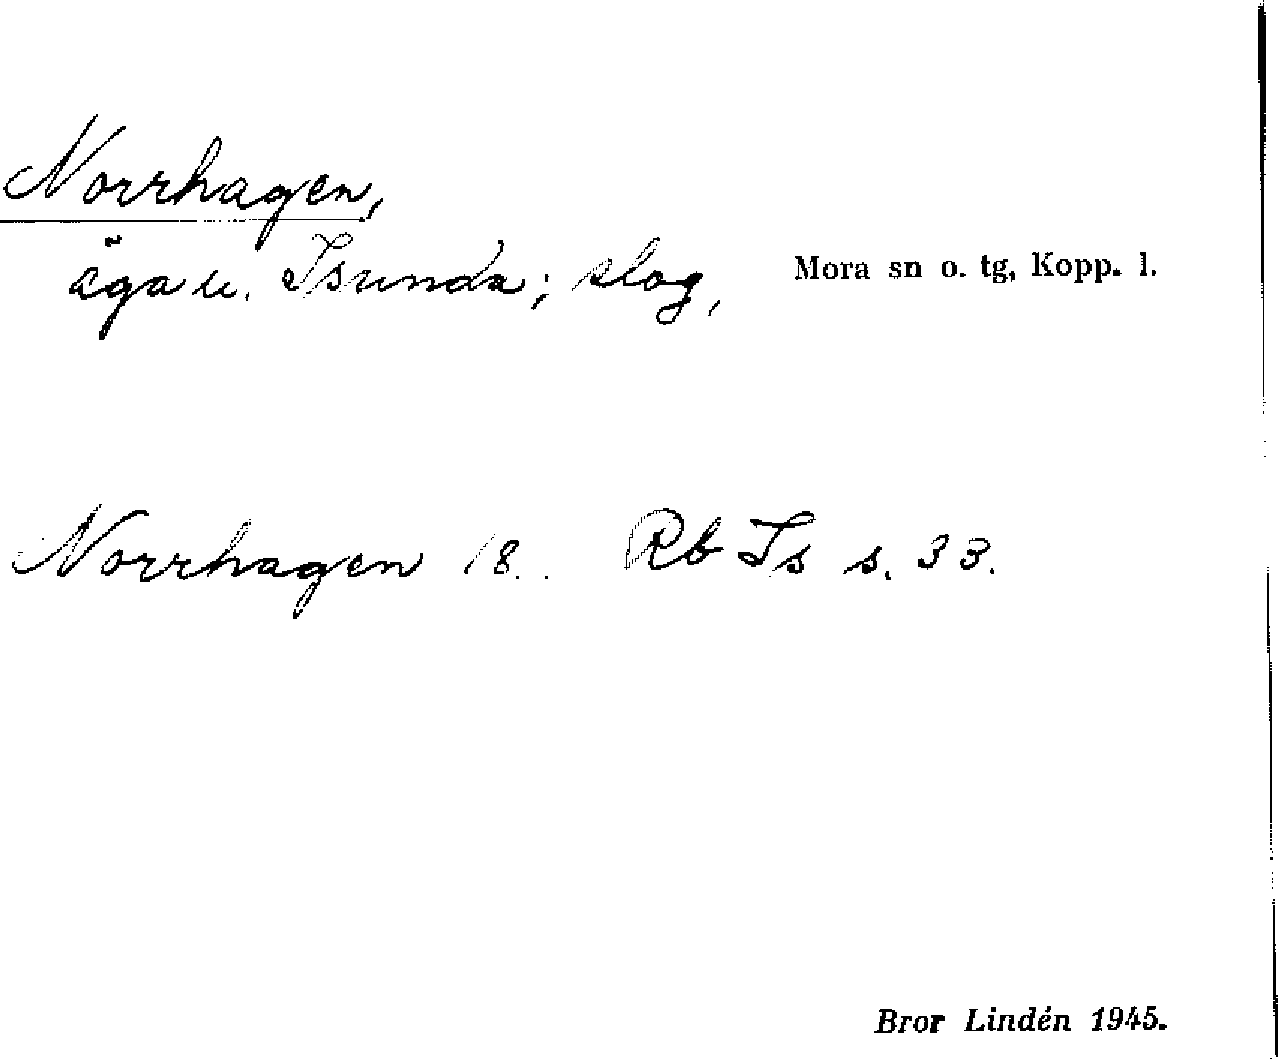 Norrhagen,
äga u. Isunda; slog,
Mora sn o. tg, Kopp. l.
Norrhagen 18.. Rb Is s. 33.
Bror Lindén 1945.